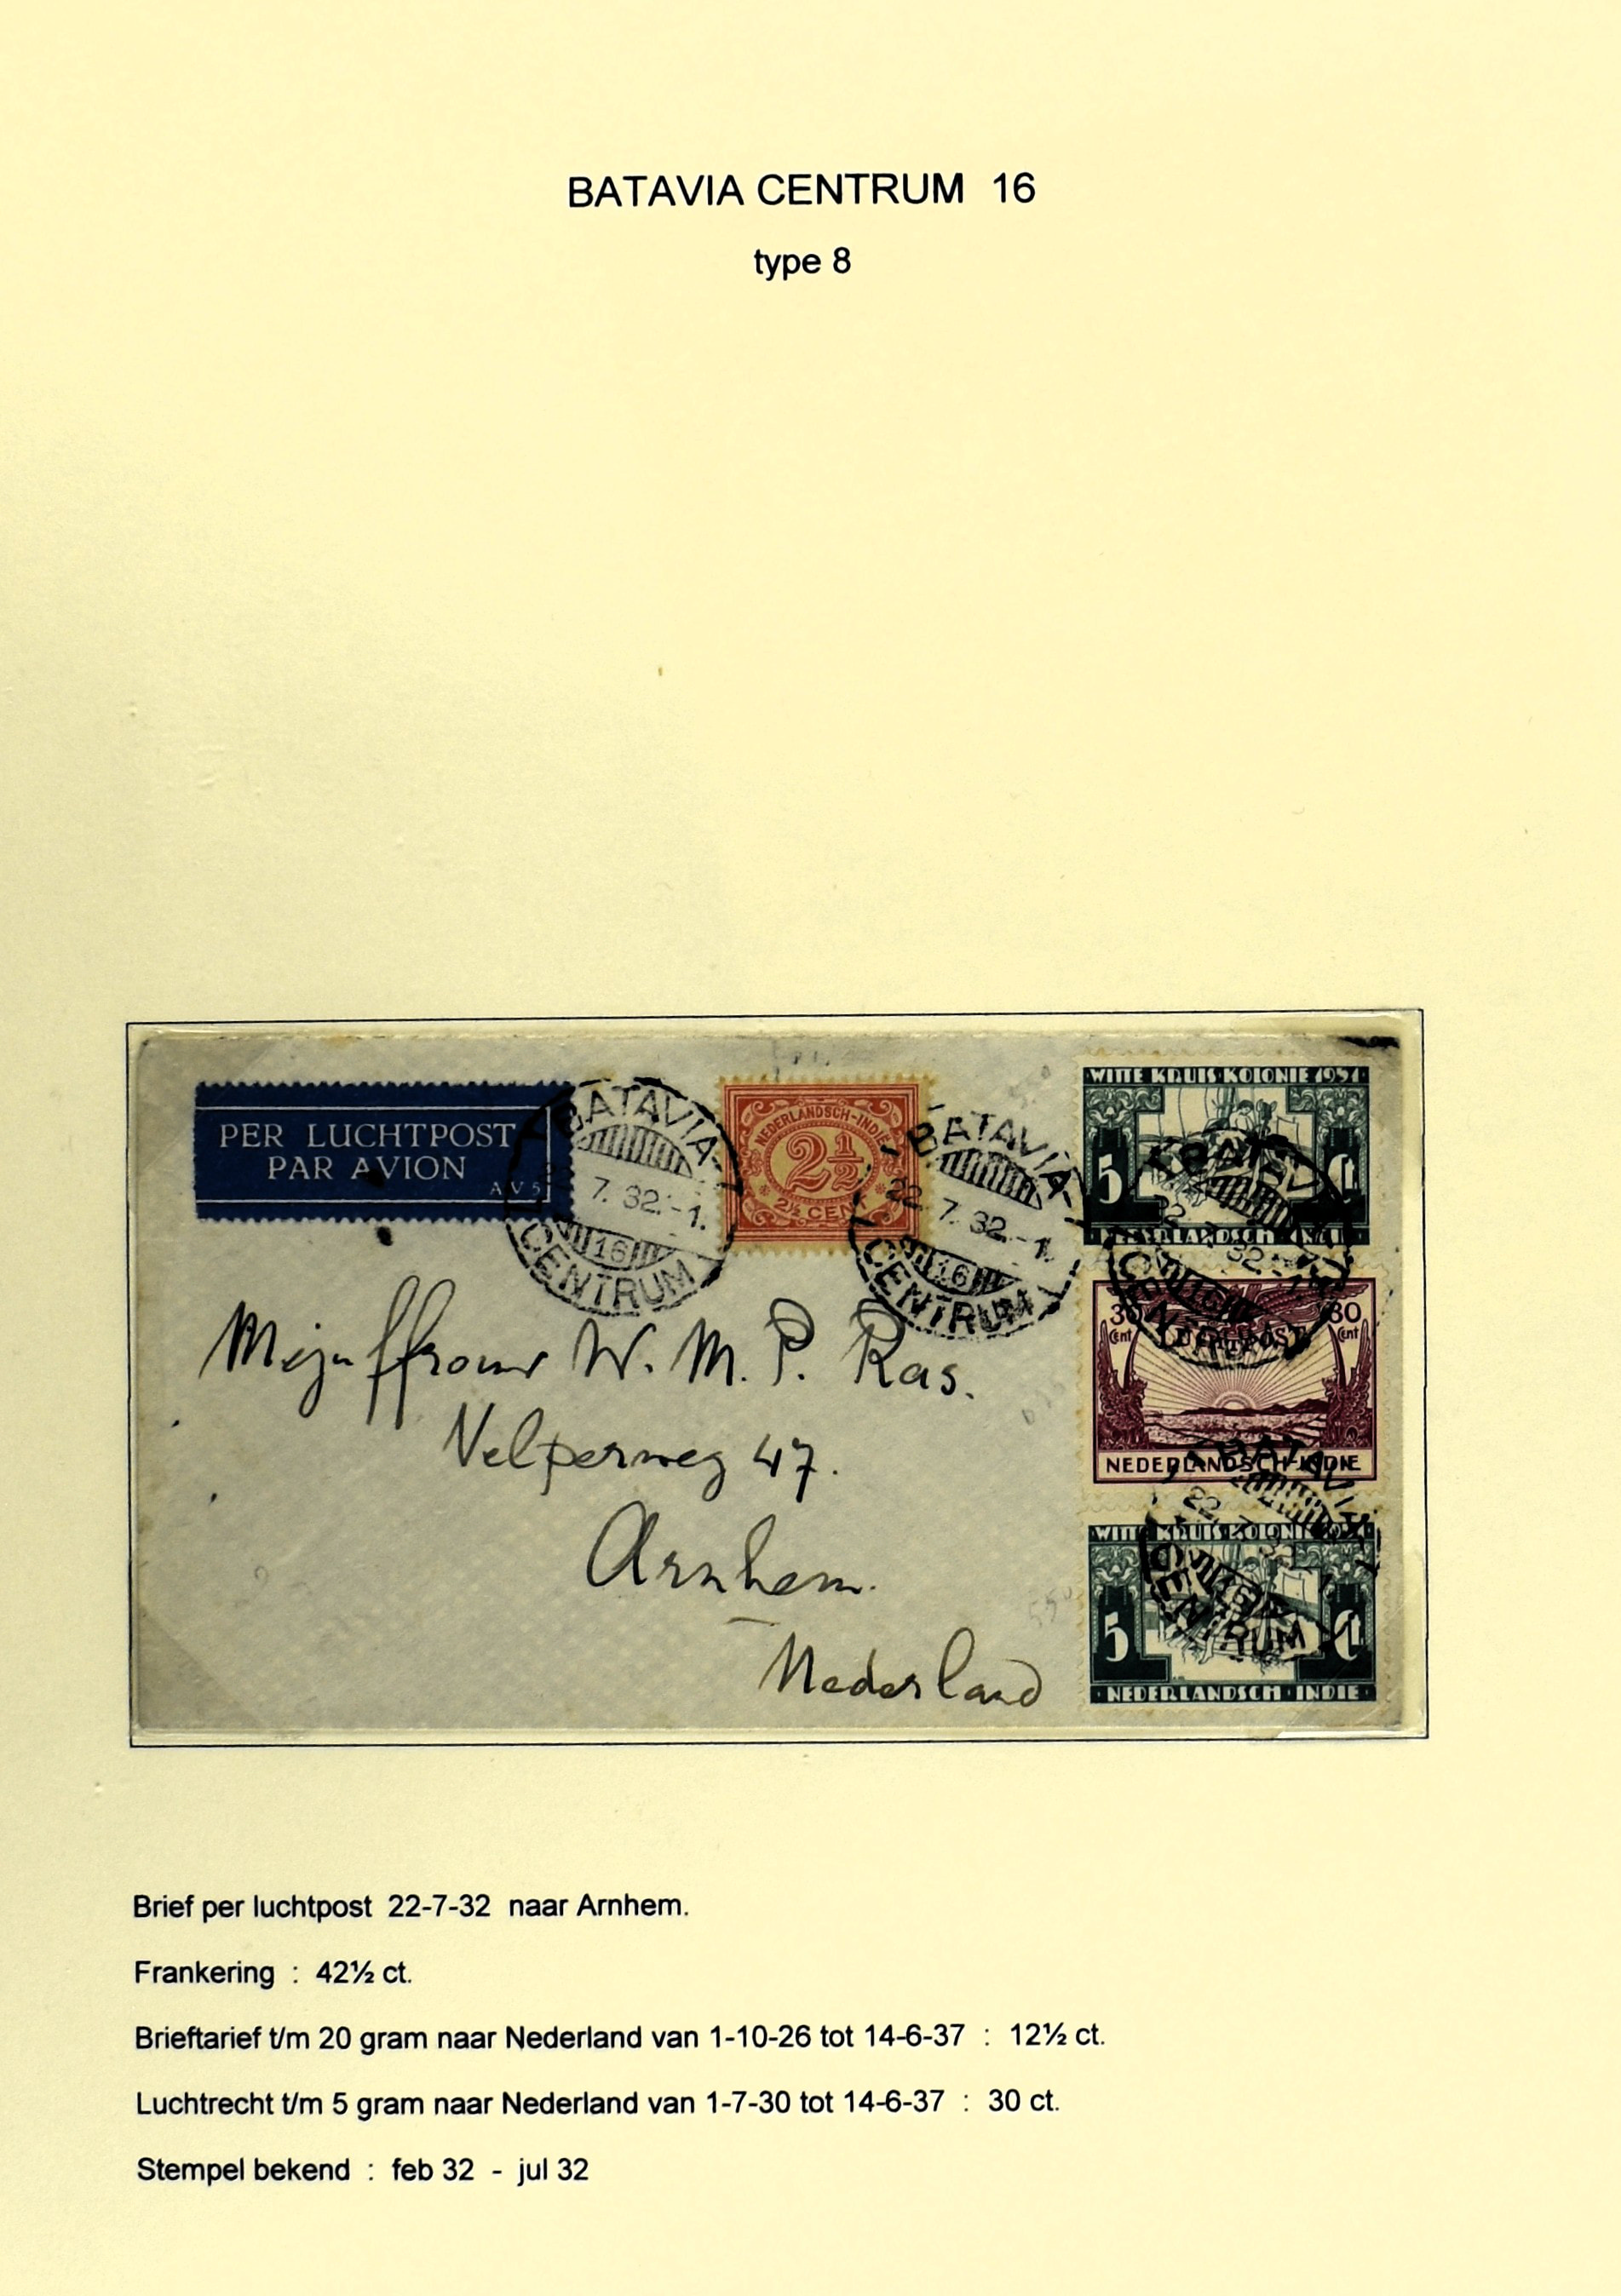 BATAVIA CENTRUM 16
type 8
PER LUCHTPOST
PAR AVION
AV5
BATAVIA-
7. 32.-1.
16
CENTRUM
NEDERLANDSCH-INDIE
2½
2½ CENT
BATAVIA-
22. 7. 32.-1.
16
CENTRUM
WITTE KRUIS KOLONIE 1931
5 Ct
NEDERLANDSCH INDIE
30 Cent 30 Cent
LUCHTPOST
NEDERLANDSCH-INDIE
WITTE KRUIS KOLONIE 1931
5 Ct
NEDERLANDSCH INDIE
Mejuffrouw W. M. P. Ras.
Velperweg 47.
Arnhem.
Nederland
Brief per luchtpost 22-7-32 naar Arnhem.
Frankering : 42½ ct.
Brieftarief t/m 20 gram naar Nederland van 1-10-26 tot 14-6-37 : 12½ ct.
Luchtrecht t/m 5 gram naar Nederland van 1-7-30 tot 14-6-37 : 30 ct.
Stempel bekend : feb 32 - jul 32